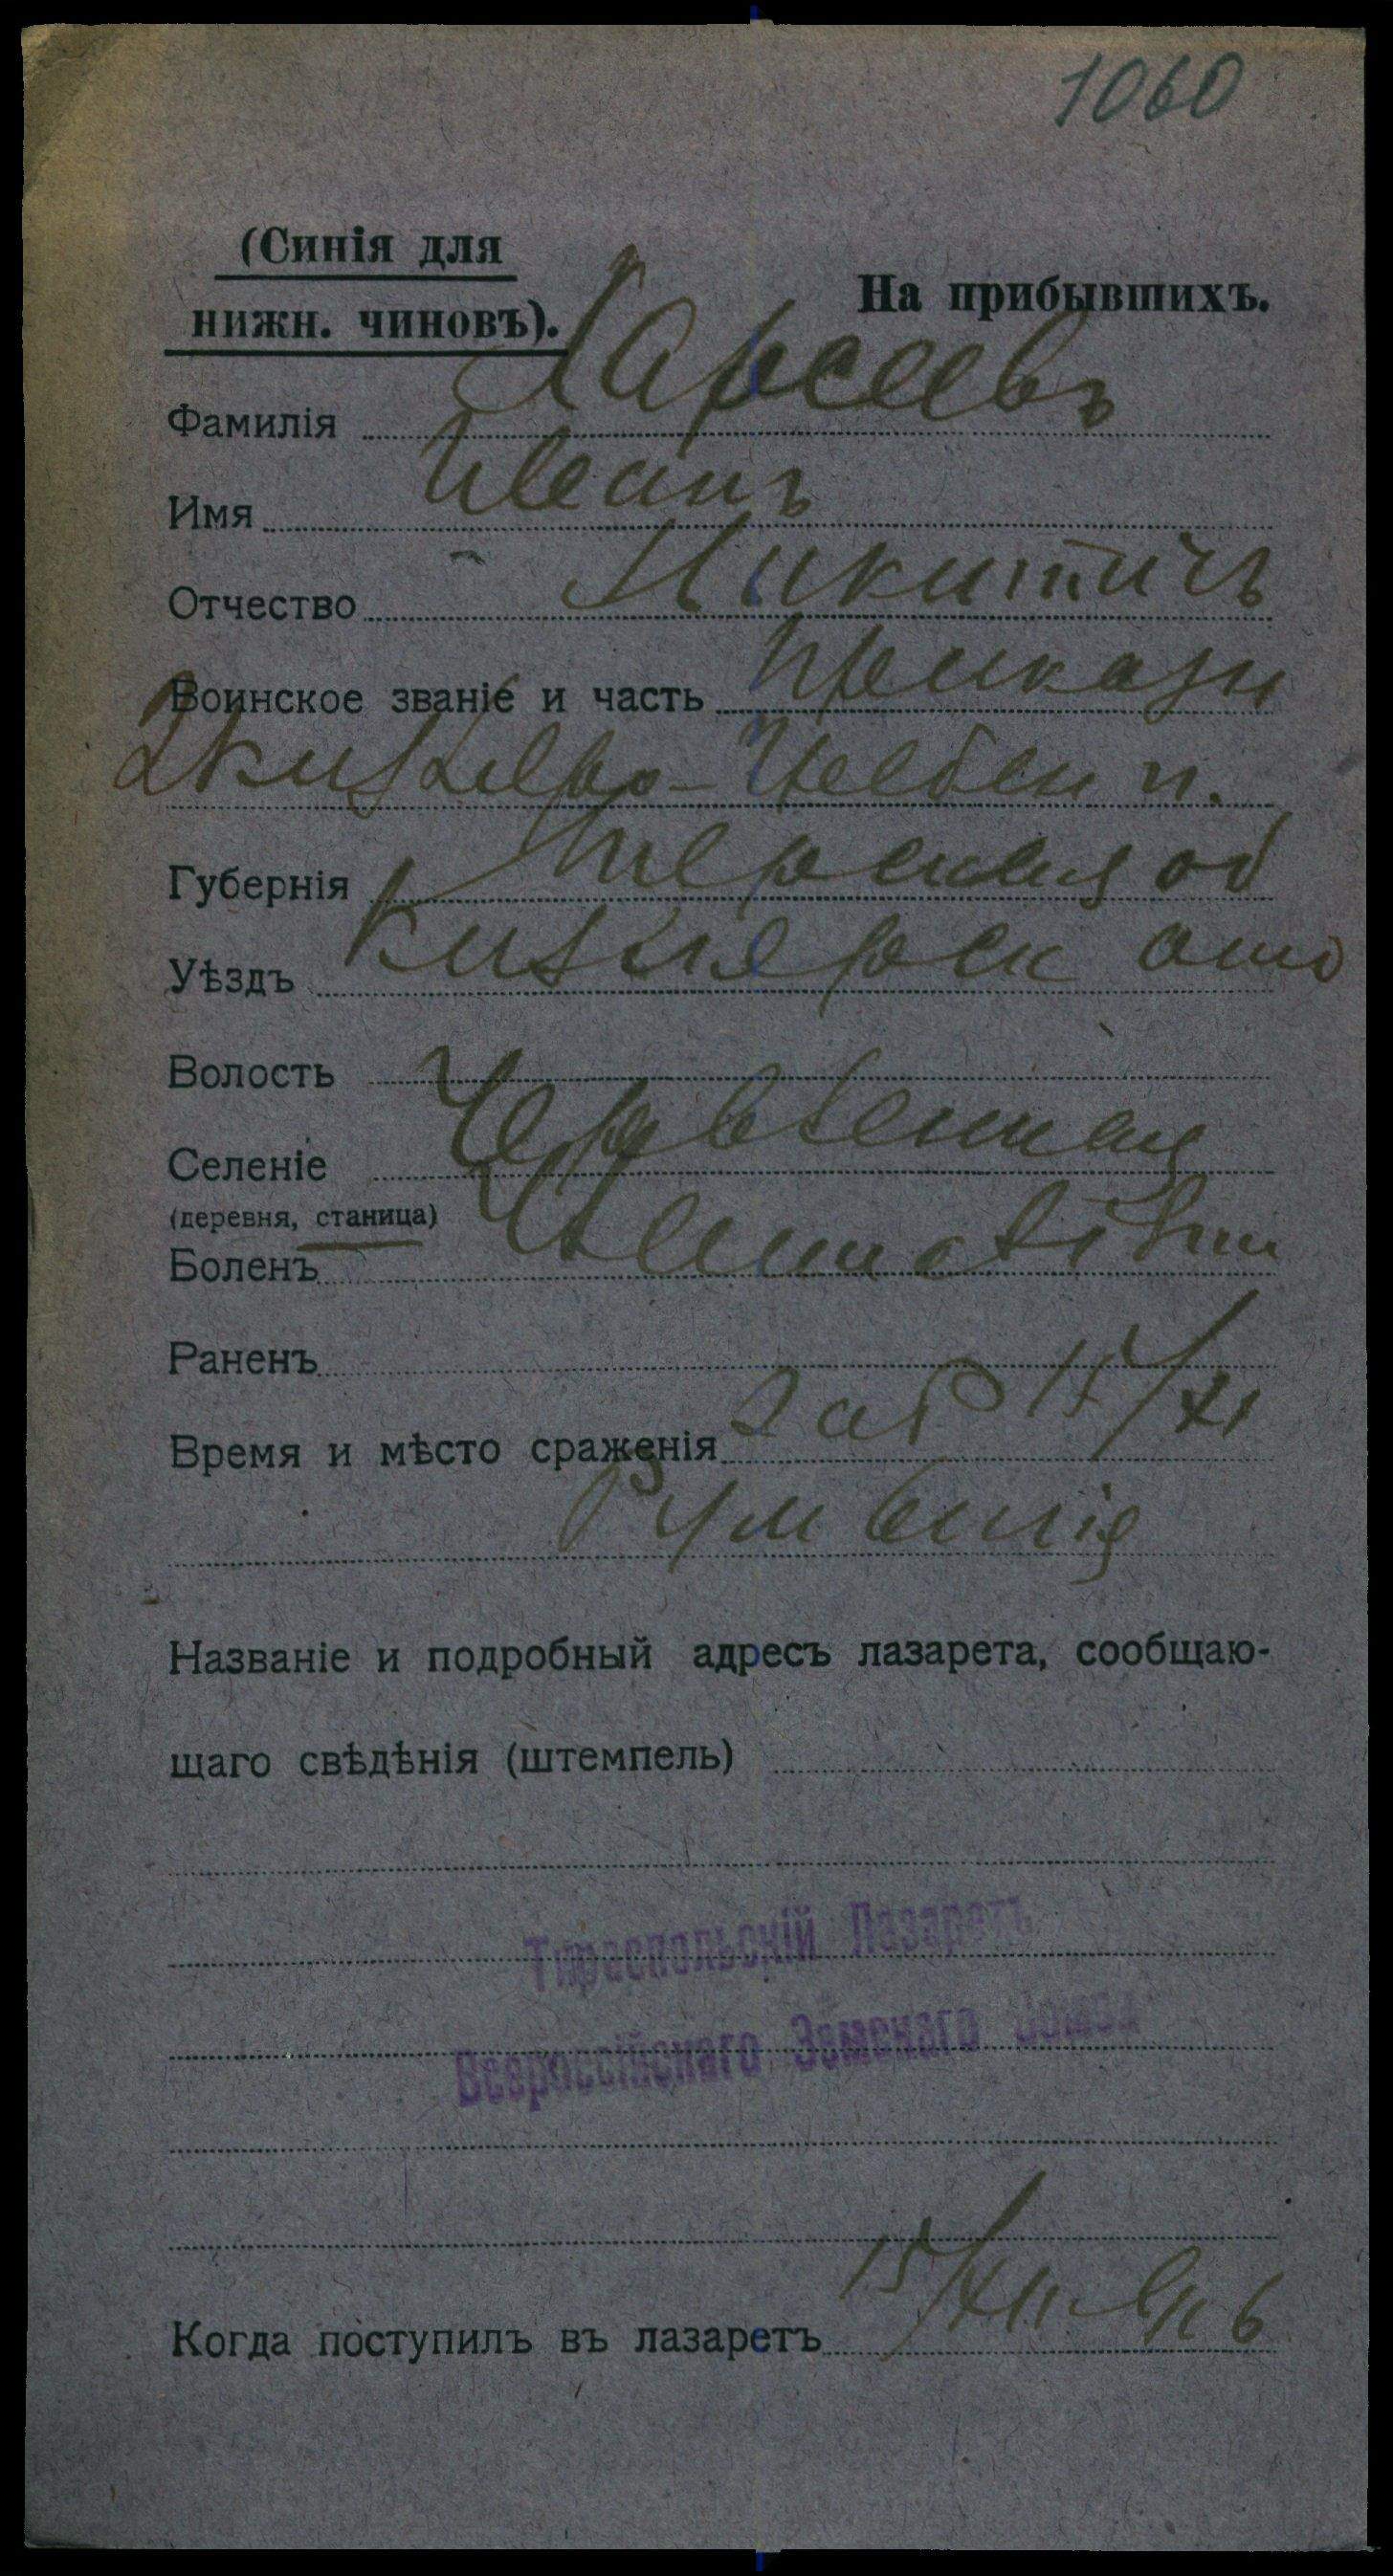 1060
(Синія для
нижн. чиновъ).
На прибывшихъ.
Фамилія Харсеевъ
Имя Иванъ
Отчество Никитичъ
Воинское званіе и часть Приказн
2 Кизляро-Гребен п.
Губернія Терская об
Уѣздъ Кизлярск отд
Волость
Селеніе Червленная
(деревня, станица)
Боленъ
Раненъ
Время и мѣсто сраженія Заб 15/XI
Румынія
Названіе и подробный адресъ лазарета, сообщаю-
щаго свѣдѣнія (штемпель)
Тираспольскій Лазаретъ
Всероссійскаго Земскаго Союза
Когда поступилъ въ лазаретъ 15/XII 916